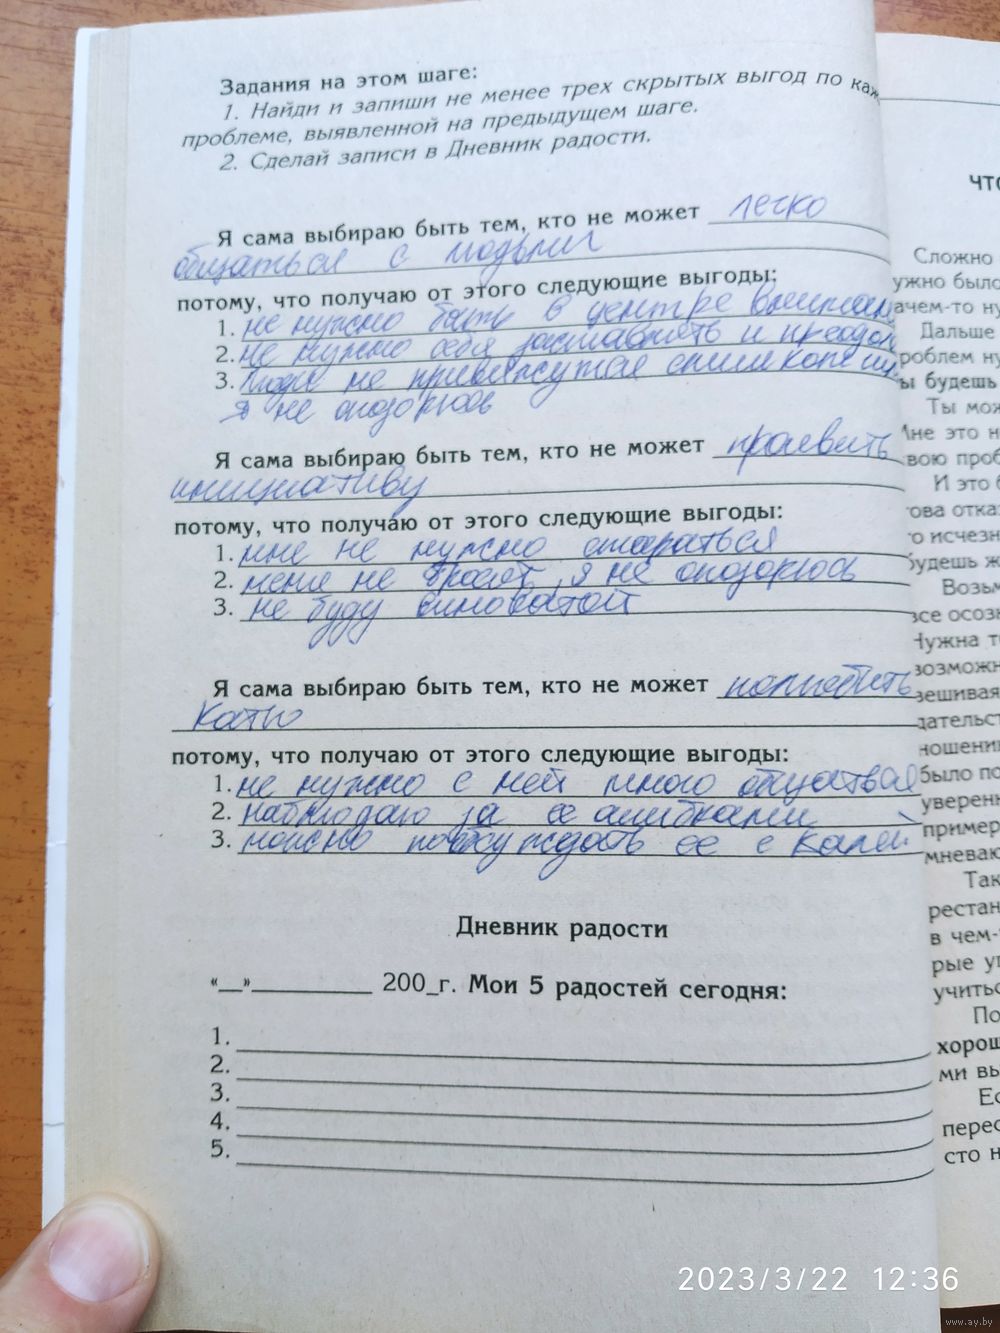 Задания на этом шаге:
1. Найди и запиши не менее трех скрытых выгод по каж
проблеме, выявленной на предыдущем шаге.
2. Сделай записи в Дневник радости.
Я сама выбираю быть тем, кто не может легко
общаться с людьми
потому, что получаю от этого следующие выгоды:
1. не нужно быть в центре внимани
2. не нужно себя заставлять и преодол
3. Люди не привяжутся слишком
я не опозорюсь
Я сама выбираю быть тем, кто не может проявить
инициативу
потому, что получаю от этого следующие выгоды:
1. мне не нужно стараться
2. меня не бросят, я не опозорюсь
3. не буду виноватой
Я сама выбираю быть тем, кто не может полюбить
Катю
потому, что получаю от этого следующие выгоды:
1. не нужно с ней много общаться
2. наблюдаю за ее ошибками
3. можно пообсуждать ее с Калей
Дневник радости
«__»________ 200_г. Мои 5 радостей сегодня:
1.
2.
3.
4.
5.
чт
Сложно
ужно было
ачем-то ну
Дальше
роблем ну
ы будешь
Ты мож
Мне это н
вою проб
И это б
това отка
о исчезн
будешь ж
Возьм
все осоз
Нужна т
возможн
вешивая
дательст
ношени
было по
уверен
пример
мневаю
Так
рестан
в чем-
рые уг
учитьс
По
хорош
ми вы
Ес
перес
сто н
2023/3/22 12:36
www.ay.by